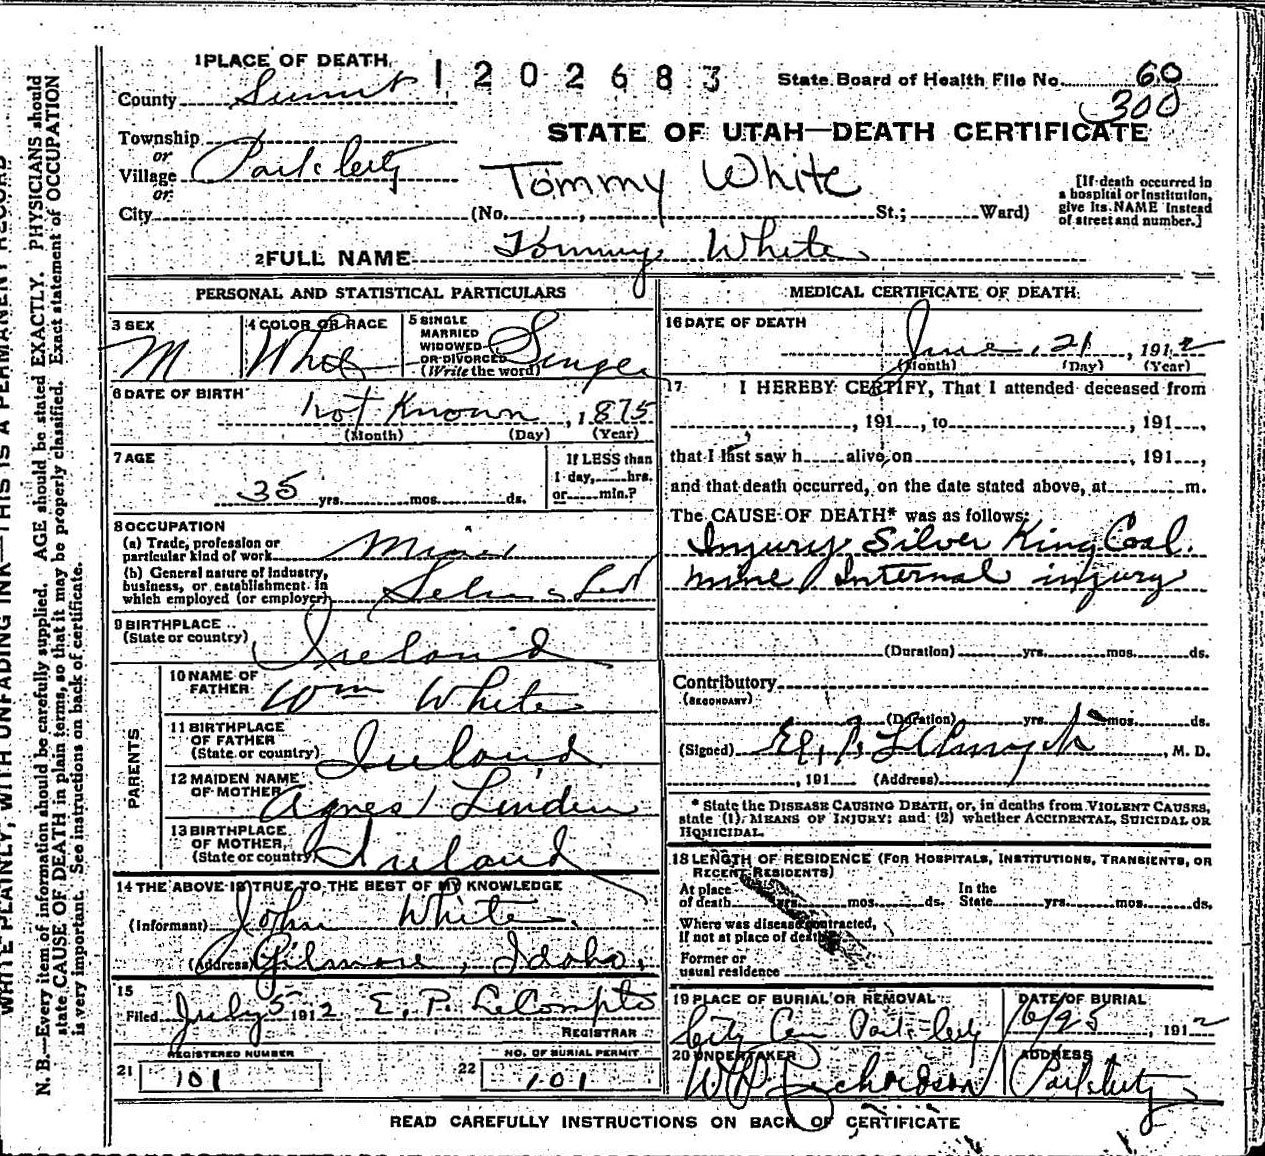 1 PLACE OF DEATH
1202683
State Board of Health File No. 60
300
County Summit
STATE OF UTAH—DEATH CERTIFICATE
Township
or
Village Park City
or
Tommy White
[If death occurred in a hospital or institution, give its NAME instead of street and number.]
City (No. , St.; Ward)
2 FULL NAME Tommy White
PERSONAL AND STATISTICAL PARTICULARS
3 SEX M
4 COLOR OR RACE White
5 SINGLE MARRIED WIDOWED OR DIVORCED (Write the word) Single
6 DATE OF BIRTH
not Known , 1875
(Month) (Day) (Year)
7 AGE
35 yrs. mos. ds.
If LESS than 1 day, hrs. or min.?
8 OCCUPATION
(a) Trade, profession or particular kind of work Miner
(b) General nature of industry, business, or establishment in which employed (or employer)
9 BIRTHPLACE
(State or country) Ireland
PARENTS
10 NAME OF FATHER Wm White
11 BIRTHPLACE OF FATHER (State or country) Ireland
12 MAIDEN NAME OF MOTHER Agnes Linden
13 BIRTHPLACE OF MOTHER (State or country) Ireland
14 THE ABOVE IS TRUE TO THE BEST OF MY KNOWLEDGE
(Informant) John White
(Address) Gilmore, Idaho.
15
Filed July 5 1912 E. P. LeCompte
REGISTRAR
REGISTERED NUMBER
NO. OF BURIAL PERMIT
21 101
22 101
MEDICAL CERTIFICATE OF DEATH
16 DATE OF DEATH
June 21, 1912
(Month) (Day) (Year)
17 I HEREBY CERTIFY, That I attended deceased from
, 191 , to , 191 ,
that I last saw h alive on , 191 ,
and that death occurred, on the date stated above, at m.
The CAUSE OF DEATH* was as follows:
Injury Silver King Coal.
mine / Internal injury
(Duration) yrs. mos. ds.
Contributory
(SECONDARY)
(Duration) yrs. mos. ds.
(Signed) , M. D.
, 191 (Address)
* State the DISEASE CAUSING DEATH, or, in deaths from VIOLENT CAUSES, state (1) MEANS OF INJURY; and (2) whether ACCIDENTAL, SUICIDAL OR HOMICIDAL.
18 LENGTH OF RESIDENCE (FOR HOSPITALS, INSTITUTIONS, TRANSIENTS, OR RECENT RESIDENTS)
At place of death yrs. mos. ds. In the State yrs. mos. ds.
Where was disease contracted, if not at place of death
Former or usual residence
19 PLACE OF BURIAL OR REMOVAL
City Cem Park City
DATE OF BURIAL
6/25, 1912
20 UNDERTAKER
Richardson
ADDRESS
Park City
READ CAREFULLY INSTRUCTIONS ON BACK OF CERTIFICATE
WRITE PLAINLY, WITH UNFADING INK—THIS IS A PERMANENT RECORD
N. B.—Every item of information should be carefully supplied. AGE should be stated EXACTLY. PHYSICIANS should
state CAUSE OF DEATH in plain terms, so that it may be properly classified. Exact statement of OCCUPATION
is very important. See instructions on back of certificate.